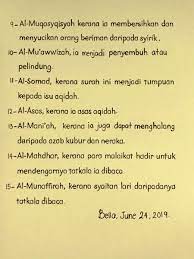 9- Al-Muqasyqisyah kerana ia membersihkan dan
menyucikan orang beriman daripada syirik.
10- Al-Mu'awwizah, ia menjadi penyembuh atau
pelindung.
11- Al-Somad, kerana surah ini menjadi tumpuan
kepada isu aqidah.
12- Al-Asas, kerana ia asas aqidah.
13- Al-Mani'ah, kerana ia juga dapat menghalang
daripada azab kubur dan neraka.
14- Al-Mahdhor, kerana para malaikat hadir untuk
mendengarnya tatkala ia dibaca.
15- Al-Munaffirah, kerana syaitan lari daripadanya
tatkala dibaca.
Bella, June 24, 2019.